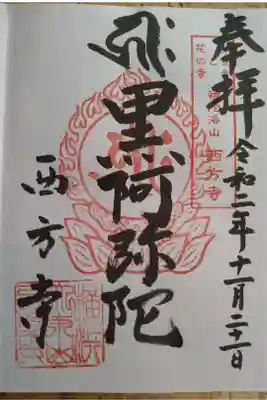 奉拝
令和二年十一月二十一日
花の寺
西方寺
黒阿弥陀
西方寺